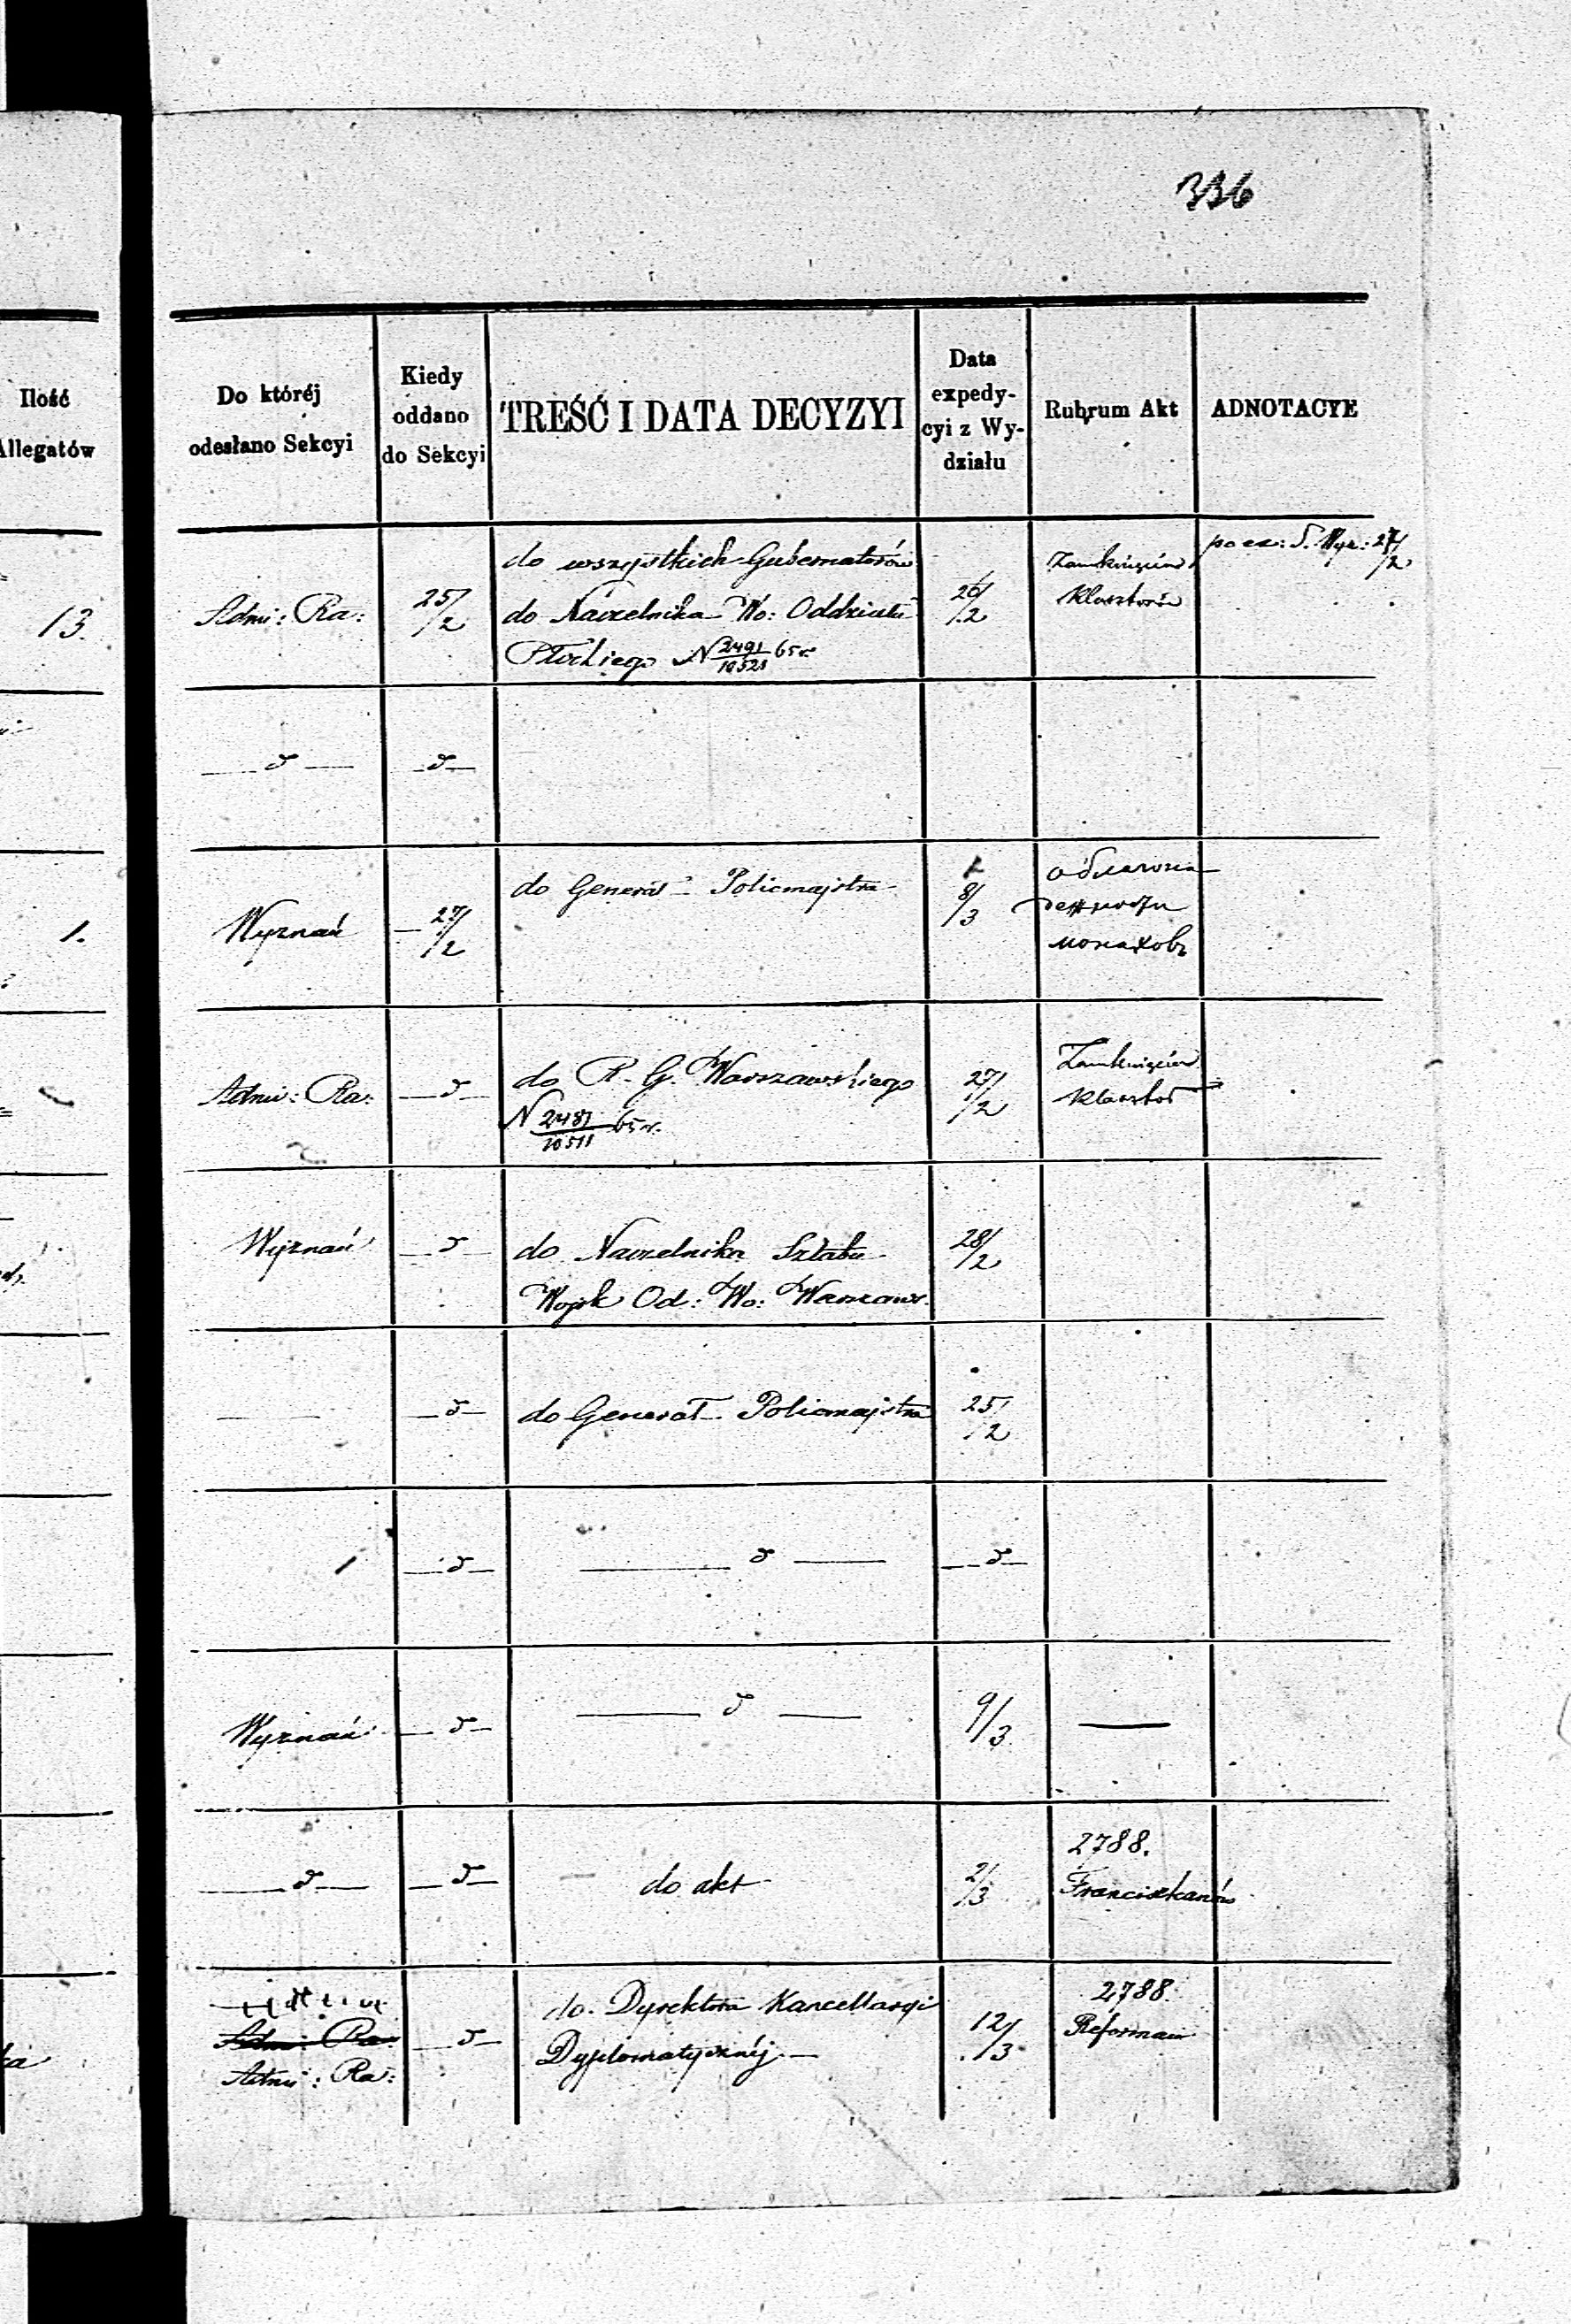 336
Ilość
Allegatów
Do któréj
odesłano Sekcyi
Kiedy
oddano
do Sekcyi
TREŚĆ I DATA DECYZYI
Data
expedy-
cyi z Wy-
działu
Rubrum Akt
ADNOTACYE
13.
Admi: Ra:
25/2
do wszystkich Gubernatorów
do Naczelnika Wo: Oddziału
Płockiego N 2491/10521 65 r.
26/2
Zamknięcia
Klasztorów
27/2
1.
Wyznań
27/2
do Generał Policmajstra
8/3
монаховъ
Admi: Ra:
do R. G. Warszawskiego
N 2487/10511 65 r.
27/2
Zamknięcia
Klasztor
Wyznań
do Naczelnika Sztabu
Wojsk Od: Wo: Warszaws.
28/2
do Generał Policmajstra
25/2
Wyznań
9/3
do akt
2/3
2788.
Franciszkanów
Admi: Ra:
Admi: Ra:
do Dyrektora Kancellaryi
Dyplomatycznéj
12/3
2788
Reforman